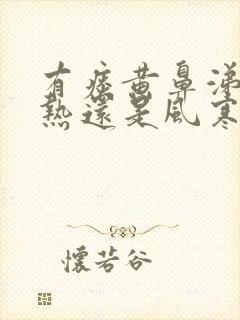 有痰黃鼻涕
熱還是風寒
懷若谷